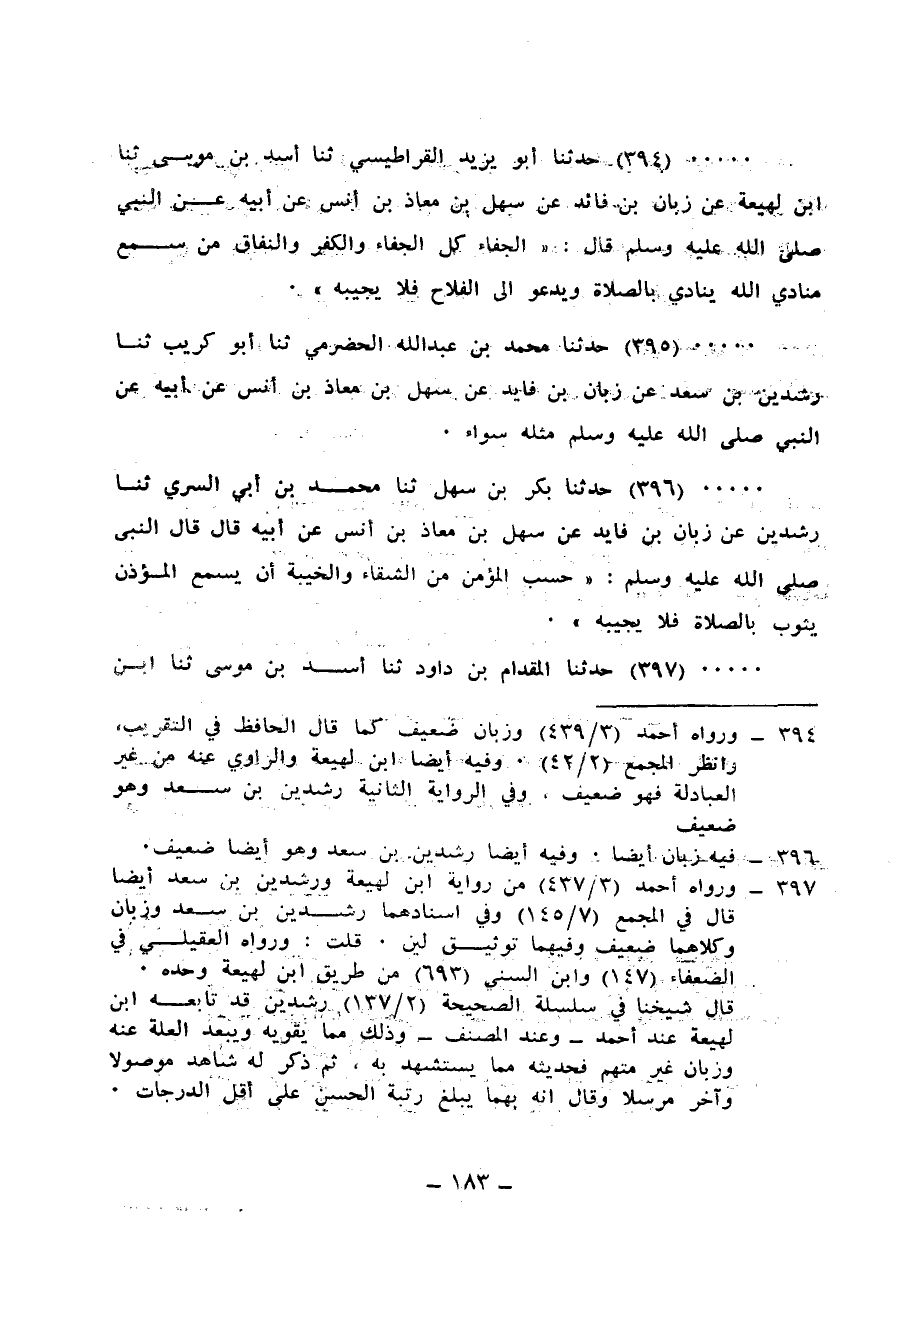 ..... (٣٩٤) حدثنا أبو يزيد القراطيسي ثنا أسد بن موسى ثنا
ابن لهيعة عن زبان بن فائد عن سهل بن معاذ بن أنس عن أبيه عن النبي
صلى الله عليه وسلم قال : « الجفاء كل الجفاء والكفر والنفاق من سمع
منادي الله ينادي بالصلاة ويدعو الى الفلاح فلا يجيبه » .
..... (٣٩٥) حدثنا محمد بن عبدالله الحضرمي ثنا أبو كريب ثنا
رشدين بن سعد عن زبان بن فايد عن سهل بن معاذ بن أنس عن أبيه عن
النبي صلى الله عليه وسلم مثله سواء .
..... (٣٩٦) حدثنا بكر بن سهل ثنا محمد بن أبي السري ثنا
رشدين عن زبان بن فايد عن سهل بن معاذ بن أنس عن أبيه قال قال النبي
صلى الله عليه وسلم : « حسب المؤمن من الشقاء والخيبة أن يسمع المؤذن
يثوب بالصلاة فلا يجيبه » .
..... (٣٩٧) حدثنا المقدام بن داود ثنا أسد بن موسى ثنا ابن
٣٩٤ ـ ورواه أحمد (٤٣٩/٣) وزبان ضعيف كما قال الحافظ في التقريب،
وانظر المجمع (٤٢/٢) . وفيه أيضا ابن لهيعة والراوي عنه من غير
العبادلة فهو ضعيف ، وفي الرواية الثانية رشدين بن سعد وهو
ضعيف
٣٩٦ ـ فيه زبان أيضا . وفيه أيضا رشدين بن سعد وهو أيضا ضعيف .
٣٩٧ ـ ورواه أحمد (٤٣٧/٣) من رواية ابن لهيعة ورشدين بن سعد أيضا
قال في المجمع (١٤٥/٧) وفي اسنادهما رشدين بن سعد وزبان
وكلاهما ضعيف وفيهما توثيق لين . قلت : ورواه العقيلي في
الضعفاء (١٤٧) وابن السني (٦٩٣) من طريق ابن لهيعة وحده .
قال شيخنا في سلسلة الصحيحة (١٣٧/٢) رشدين قد تابعه ابن
لهيعة عند أحمد ـ وعند المصنف ـ وذلك مما يقويه ويبعد العلة عنه
وزبان غير متهم فحديثه مما يستشهد به ، ثم ذكر له شاهد موصولا
وآخر مرسلا وقال انه بهما يبلغ رتبة الحسن على أقل الدرجات .
ـ ١٨٣ ـ